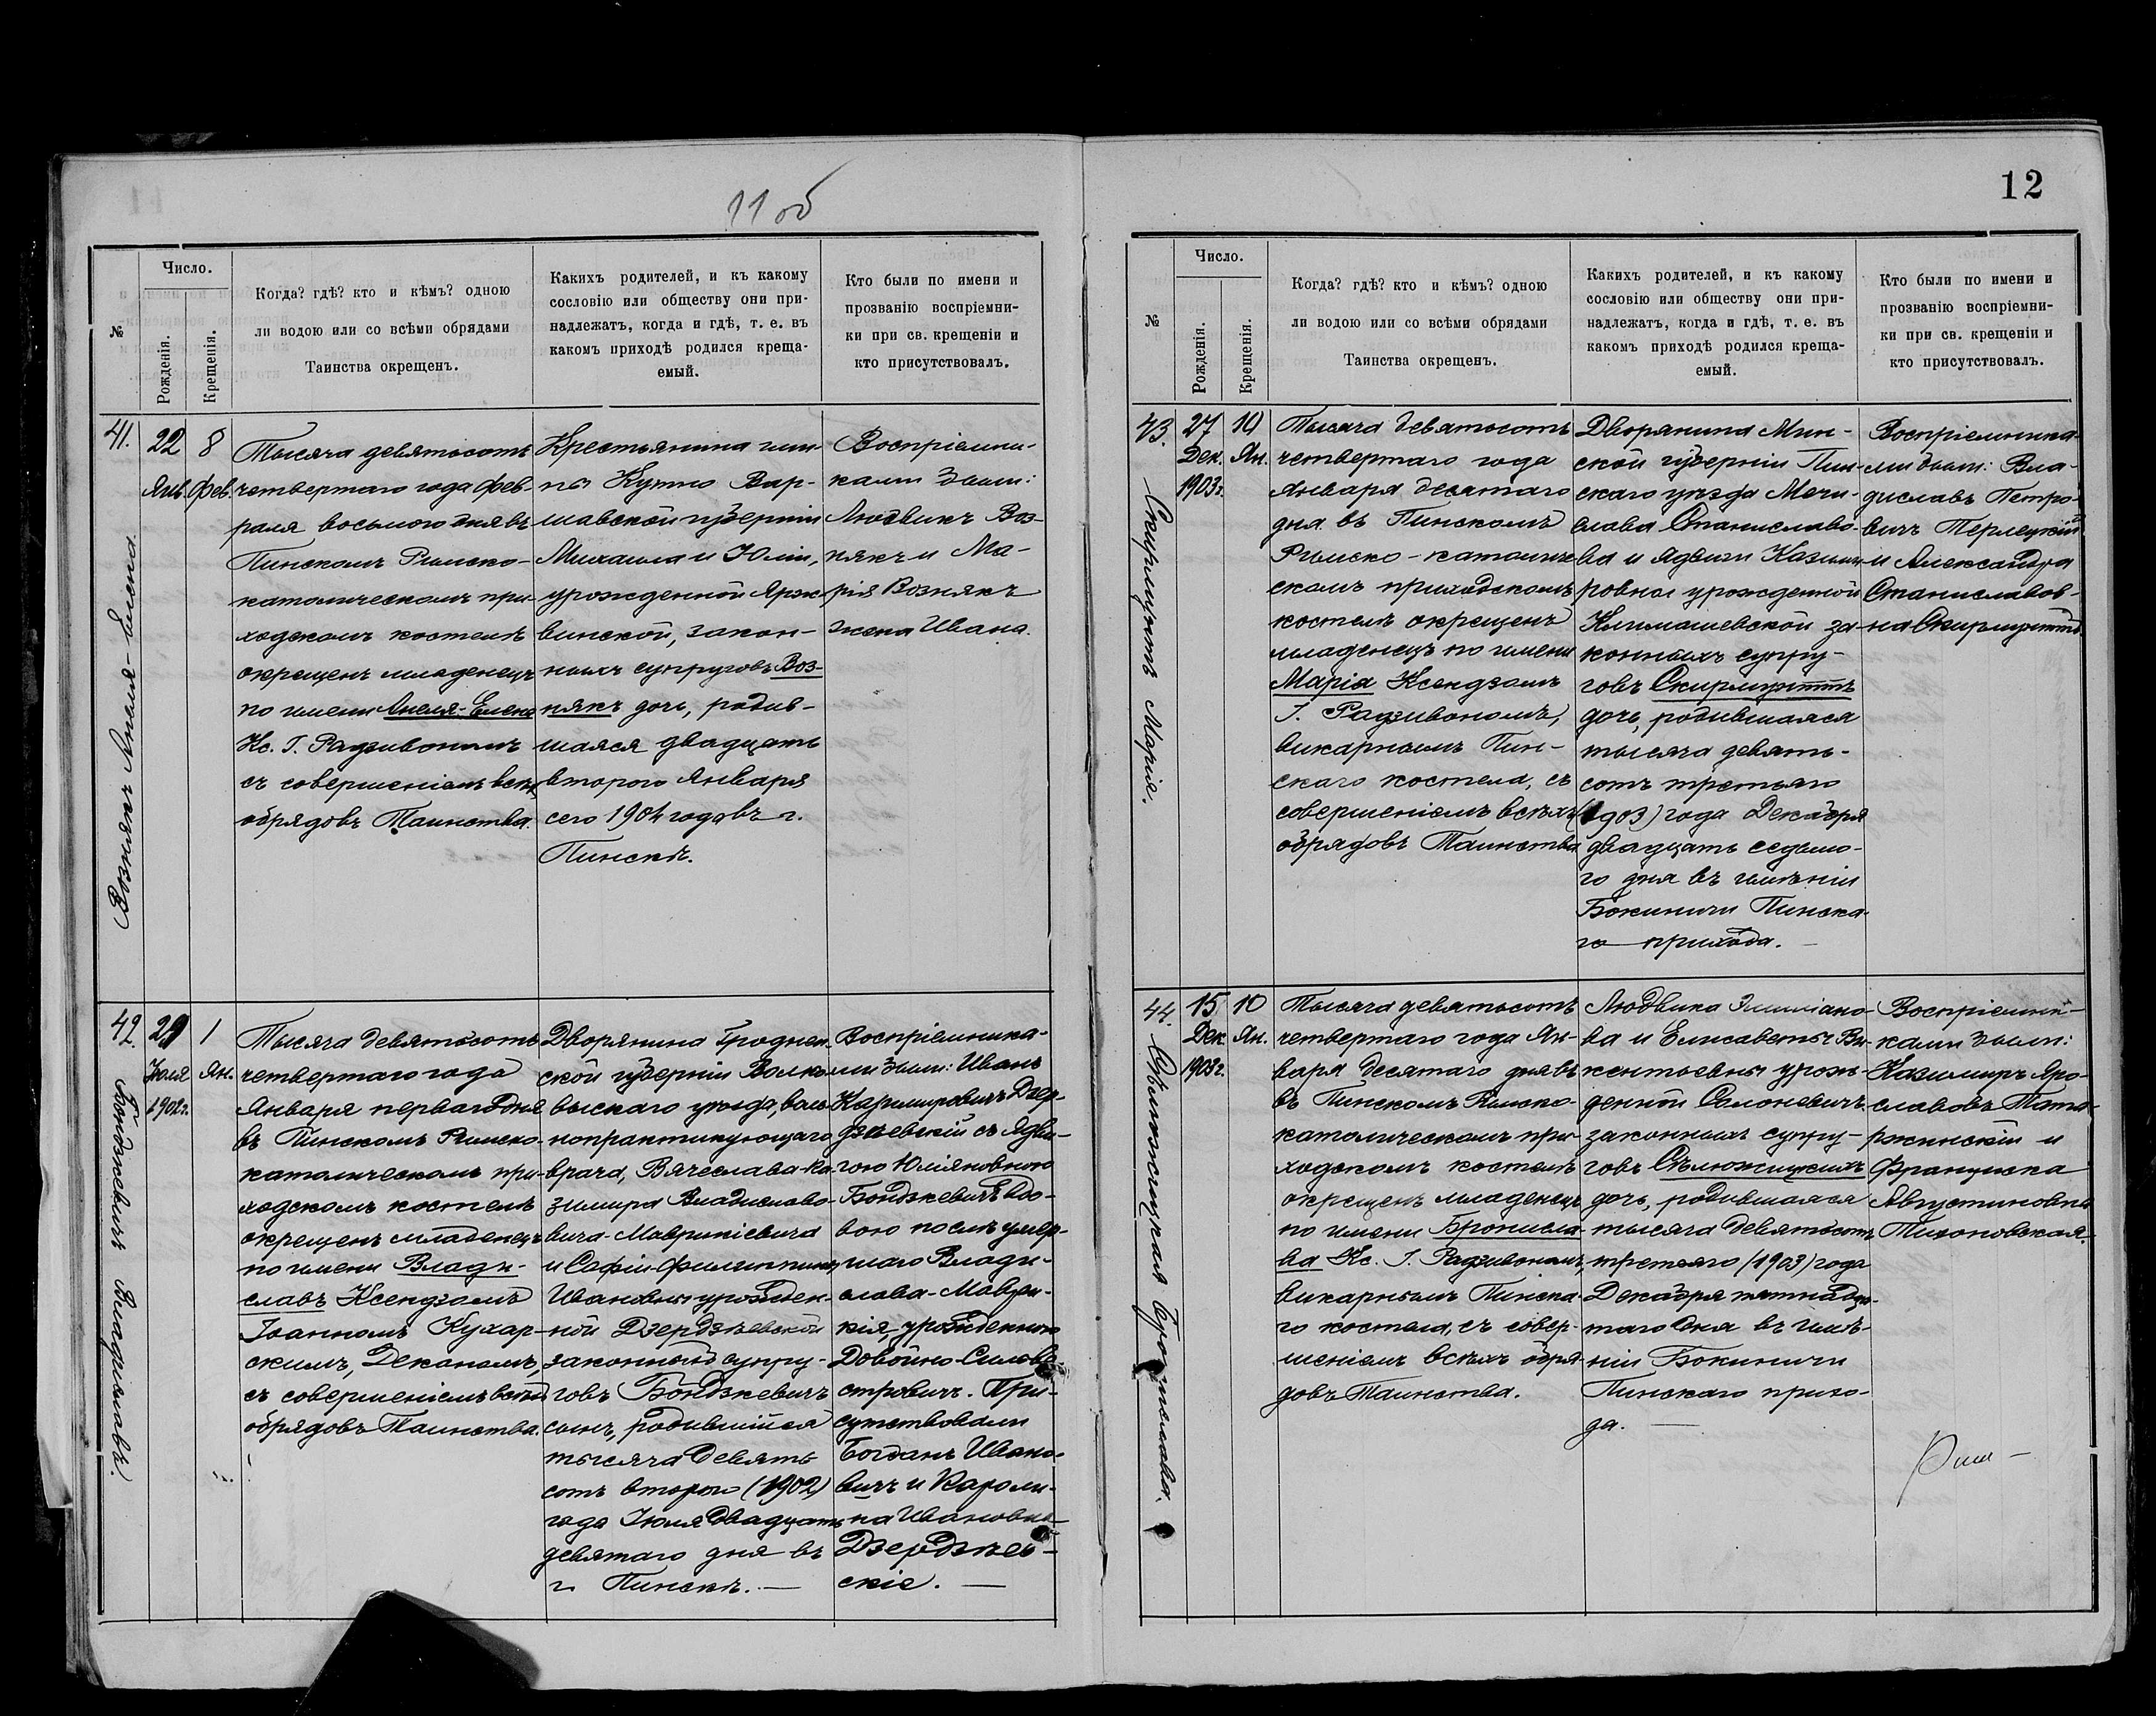 11 об
№
Число.
Рожденія.
Крещенія.
Когда? гдѣ? кто и кѣмъ? одною
ли водою или со всѣми обрядами
Таинства окрещенъ.
Какихъ родителей, и къ какому
сословію или обществу они при-
надлежатъ, когда и гдѣ, т. е. въ
какомъ приходѣ родился креща-
емый.
Кто были по имени и
прозванію воспріемни-
ки при св. крещеніи и
кто присутствовалъ.
41.
Вознякъ Анеля-Елена.
22
Янв.
8
Фев.
Тысяча девятьсотъ
четвертаго года фев-
раля восьмого дня въ
Пинскомъ Римско-
католическомъ при-
ходскомъ костелѣ
окрещенъ младенецъ
по имени Анеля-Елена
Кс. І. Радзивономъ
съ совершеніемъ всѣхъ
обрядовъ Таинства.
Крестьянина гми-
ны Кутно Вар-
шавской губерніи
Михаила и Юліи,
урожденной Ярж-
винской, закон-
ныхъ супруговъ Воз-
някъ дочь, родив-
шаяся двадцать
второго Января
сего 1904 года въ г.
Пинскѣ.
Воспріемни-
ками были:
Людвикъ Воз-
някъ и Ма-
рія Вознякъ
жена Ивана.
42.
Бондзкевичъ Владиславъ.
29
Іюля
1902 г.
1
Ян.
Тысяча девятьсотъ
четвертаго года
Января перваго дня
въ Пинскомъ Римско-
католическомъ при-
ходскомъ костелѣ
окрещенъ младенецъ
по имени Влади-
славъ Ксендзомъ
Іоанномъ Кухар-
скимъ, Деканомъ,
съ совершеніемъ всѣхъ
обрядовъ Таинства.
Дворянина Гроднен-
ской губерніи Волко-
выскаго уѣзда, воль-
нопрактикующаго
врача, Вячеслава-Ка-
зимира Владиславо-
вича-Маврикіевича
и Софіи-Филиппины
Ивановны урожден-
ной Дзердзѣевской
законныхъ супру-
говъ Бондзкевичъ
сынъ, родившійся
тысяча девять
сотъ второго (1902)
года Іюля двадцать
девятаго дня въ
г. Пинскѣ. —
Воспріемника-
ми были: Иванъ
Казимировичъ Дзер-
дзѣевскій съ Ядви-
гою Юліяновною
Бондзкевичъ вдо-
вою послѣ умер-
шаго Влади-
слава-Маври-
кія, урожденною
Довойно-Силиве-
стровичъ. При-
сутствовали
Богданъ Ивано-
вичъ и Кароли-
на Ивановна
Дзердзѣев-
скіе. —
12
№
Число.
Рожденія.
Крещенія.
Когда? гдѣ? кто и кѣмъ? одною
ли водою или со всѣми обрядами
Таинства окрещенъ.
Какихъ родителей, и къ какому
сословію или обществу они при-
надлежатъ, когда и гдѣ, т. е. въ
какомъ приходѣ родился креща-
емый.
Кто были по имени и
прозванію воспріемни-
ки при св. крещеніи и
кто присутствовалъ.
43.
Скирмунттъ Марія.
27
Дек.
1903 г.
10
Ян.
Тысяча девятьсотъ
четвертаго года
Января десятаго
дня въ Пинскомъ
Римско-католиче-
скомъ приходскомъ
костелѣ окрещенъ
младенецъ по имени
Марія Ксендзомъ
І. Радзивономъ,
викарнымъ Пин-
скаго костела, съ
совершеніемъ всѣхъ
обрядовъ Таинства.
Дворянина Мин-
ской губерніи Пин-
скаго уѣзда Мечи-
слава Станиславо-
ва и Ядвиги Казими-
ровны урожденной
Климашевской за-
конныхъ супру-
говъ Скирмунттъ
дочь, родившаяся
тысяча девять-
сотъ третьяго
(1903) года Декабря
двадцать седьмо-
го дня въ имѣніи
Бокиничи Пинска-
го прихода. —
Воспріемника-
ми были: Вла-
диславъ Петро-
вичъ Терлецкій
и Александра
Станиславов-
на Скирмунттъ.
44.
Сѣлюжицкая Бронислава.
15
Дек.
1903 г.
10
Ян.
Тысяча девятьсотъ
четвертаго года Ян-
варя десятаго дня въ
въ Пинскомъ Римско-
католическомъ при-
ходскомъ костелѣ
окрещенъ младенецъ
по имени Брописла-
ва Кс. І. Радзивономъ,
викарнымъ Пинска-
го костела, съ совер-
шеніемъ всѣхъ обря-
довъ Таинства.
Людвика Эмиліано-
ва и Елисаветы Ви-
кентьевны урож-
денной Солоневичъ
законныхъ супру-
говъ Сѣлюжицкихъ
дочь, родившаяся
тысяча девятьсотъ
третьяго (1903) года
Декабря пятнадца-
таго дня въ имѣ-
ніи Бокиничи
Пинскаго прихо-
да. —
Воспріемни-
ками были:
Казимиръ Яро-
славовъ
и
Франциска
Августиновна
Тихоновская.